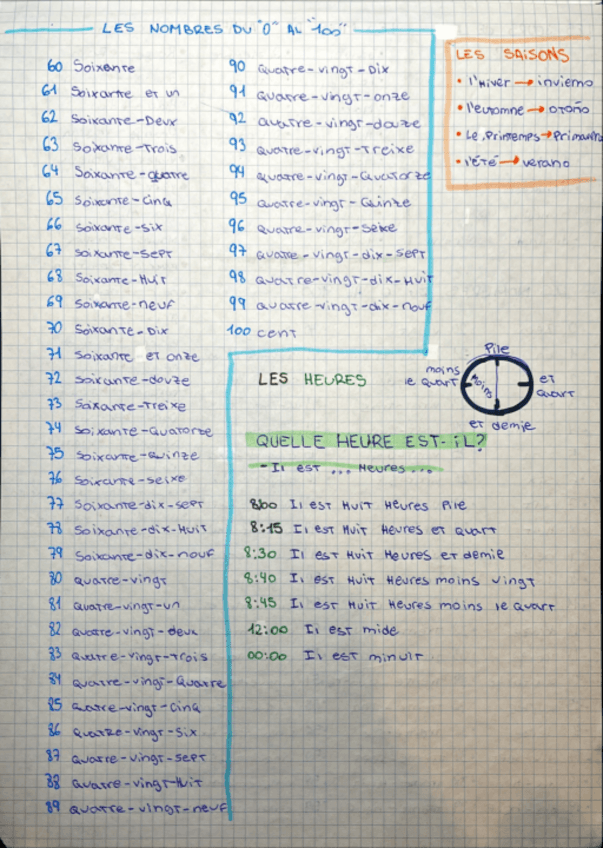 LES NOMBRES DU "0" AL "100"
60 Soixante
61 Soixante et un
62 Soixante-Deux
63 Soixante-Trois
64 Soixante-quatre
65 Soixante-Cinq
66 Soixante-Six
67 Soixante-Sept
68 Soixante-Huit
69 Soixante-neuf
70 Soixante-Dix
71 Soixante et onze
72 Soixante-douze
73 Soixante-Treixe
74 Soixante-Quatorze
75 Soixante-Quinze
76 Soixante-seixe
77 Soixante-dix-sept
78 Soixante-dix-Huit
79 Soixante-dix-nouf
80 Quatre-vingt
81 Quatre-vingt-un
82 Quatre-vingt-deux
83 Quatre-vingt-trois
84 Quatre-vingt-Quatre
85 Quatre-vingt-cinq
86 Quatre-vingt-six
87 Quatre-vingt-sept
88 Quatre-vingt-Huit
89 Quatre-vingt-neuf
90 Quatre-vingt-Dix
91 Quatre-vingt-onze
92 Quatre-vingt-douze
93 Quatre-vingt-Treixe
94 Quatre-vingt-Quatorze
95 Quatre-vingt-Quinze
96 Quatre-vingt-seixe
97 Quatre-vingt-dix-sept
98 Quatre-vingt-dix-Huit
99 Quatre-vingt-dix-nouf
100 cent
LES SAISONS
• l'Hiver → invierno
• l'eutomne → otoño
• Le Printemps → Primavera
• l'été → verano
LES HEURES
Pile
moins
le quart
Moins
et
Quart
et demie
QUELLE HEURE EST-iL?
- Il est ... Heures ...
8:00 Il est Huit Heures Pile
8:15 Il est Huit Heures et Quart
8:30 Il est Huit Heures et demie
8:40 Il est Huit Heures moins vingt
8:45 Il est Huit Heures moins le Quart
12:00 Il est mide
00:00 Il est minuit